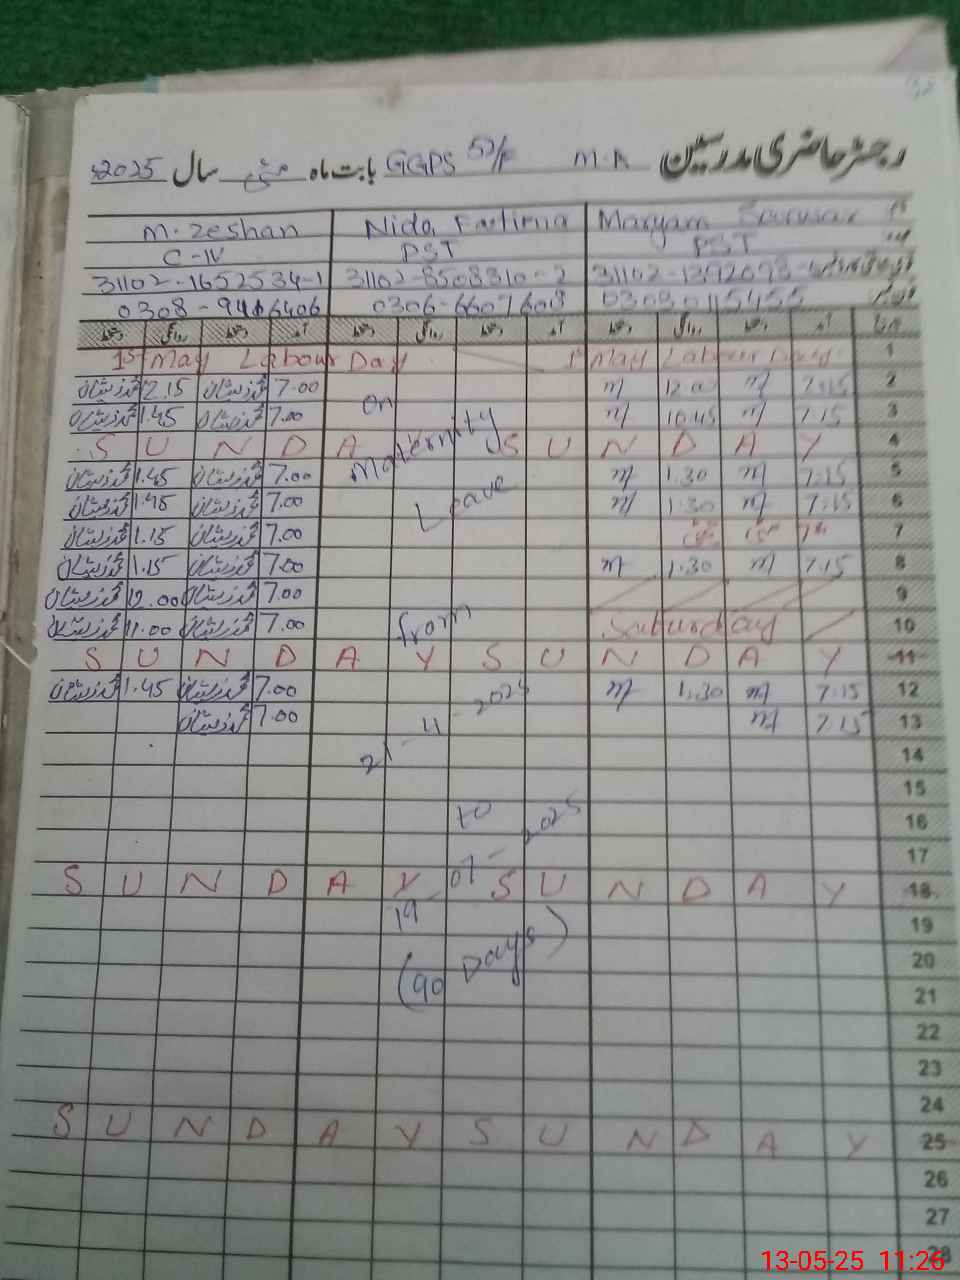 رجسٹر حاضری مدرسین M.A GGPS 52/F بابت ماہ مئی سال 2025
M. Zeshan Nida Fatima Maryam Sarwar نام
C-IV PST PST عہدہ
31102-1652534-1 31102-8508310-2 31102-1392093-
0308-9416406 0306-6607608 03030115455 فون نمبر
دستخط روانگی دستخط آمد دستخط روانگی دستخط آمد دستخط روانگی دستخط آمد تاریخ
1st May Labour Day 1st May Labour Day 1
محمد ذیشان 2.15 محمد ذیشان 7.00 m 12.00 m 7:15 2
محمد ذیشان 1.45 محمد ذیشان 7.00 On m 10.45 m 7.15 3
S U N D A Y S U N D A Y 4
محمد ذیشان 1.45 محمد ذیشان 7.00 Maternity m 1.30 m 7:15 5
محمد ذیشان 1.45 محمد ذیشان 7.00 Leave m 1:30 m 7:15 6
محمد ذیشان 1.15 محمد ذیشان 7.00 7
محمد ذیشان 1.15 محمد ذیشان 7.00 m 1.30 m 7.15 8
محمد ذیشان 12.00 محمد ذیشان 7.00 9
محمد ذیشان 11.00 محمد ذیشان 7.00 from Saturday 10
S U N D A Y S U N D A Y 11
محمد ذیشان 1.45 محمد ذیشان 7.00 m 1.30 m 7:15 12
محمد ذیشان 7.00 m 7.15 13
21-4-2025 14
15
to 16
17
S U N D A Y S U N D A Y 18
19-07-2025 19
(90 Days) 20
21
22
23
24
S U N D A Y S U N D A Y 25
26
27
28
13-05-25 11:26